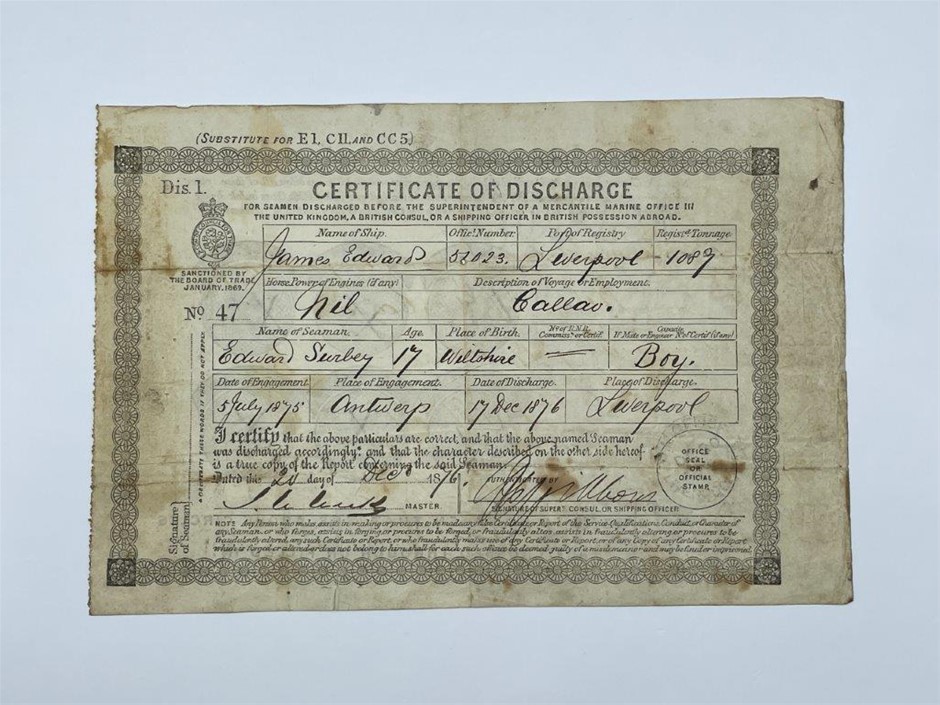 (SUBSTITUTE FOR E1, C11. AND CC5)
Dis. 1.
CERTIFICATE OF DISCHARGE
FOR SEAMEN DISCHARGED BEFORE THE SUPERINTENDENT OF A MERCANTILE MARINE OFFICE IN
THE UNITED KINGDOM, A BRITISH CONSUL, OR A SHIPPING OFFICER IN BRITISH POSSESSION ABROAD.
SANCTIONED BY
THE BOARD OF TRADE
JANUARY, 1869.
No 47
Name of Ship. Offic! Number. Port of Registry Regist.d Tonnage
James Edward 52023. Liverpool 1087
Horse Power of Engines (if any) Description of Voyage or Employment.
Nil Callao.
Name of Seaman. Age. Place of Birth. No of R.N.R. Commiss.n or Certif. Capacity If Mate or Engineer No of Certif (if any)
Edward Surbey 17 Wiltshire — Boy.
Date of Engagement. Place of Engagement. Date of Discharge. Place of Discharge.
5 July 1875 Antwerp 17 Dec 1876 Liverpool
I certify that the above particulars are correct, and that the above named Seaman
was discharged accordingly, and that the character described on the other side hereof
is a true copy of the Report concerning the said Seaman.
Dated this 20 day of Dec 1876. AUTHENTICATED BY
MASTER.
SIGNATURE OF SUPERT. CONSUL, OR SHIPPING OFFICER
OFFICE
SEAL
OR
OFFICIAL
STAMP
Signature
of Seaman
NOTE Any Person who makes assists in making or procures to be made any false Certificate or Report of the Service, Qualifications, Conduct, or Character of
any Seaman, or who forges, assists in forging, or procures to be forged, or fraudulently alters, assists in fraudulently altering, or procures to be
fraudulently altered, any such Certificate or Report, or who fraudulently makes use of any Certificate or Report, or of any Copy of any Certificate or Report
which is forged or altered or does not belong to him, shall for each such offence be deemed guilty of a misdemeanor and may be fined or imprisoned.